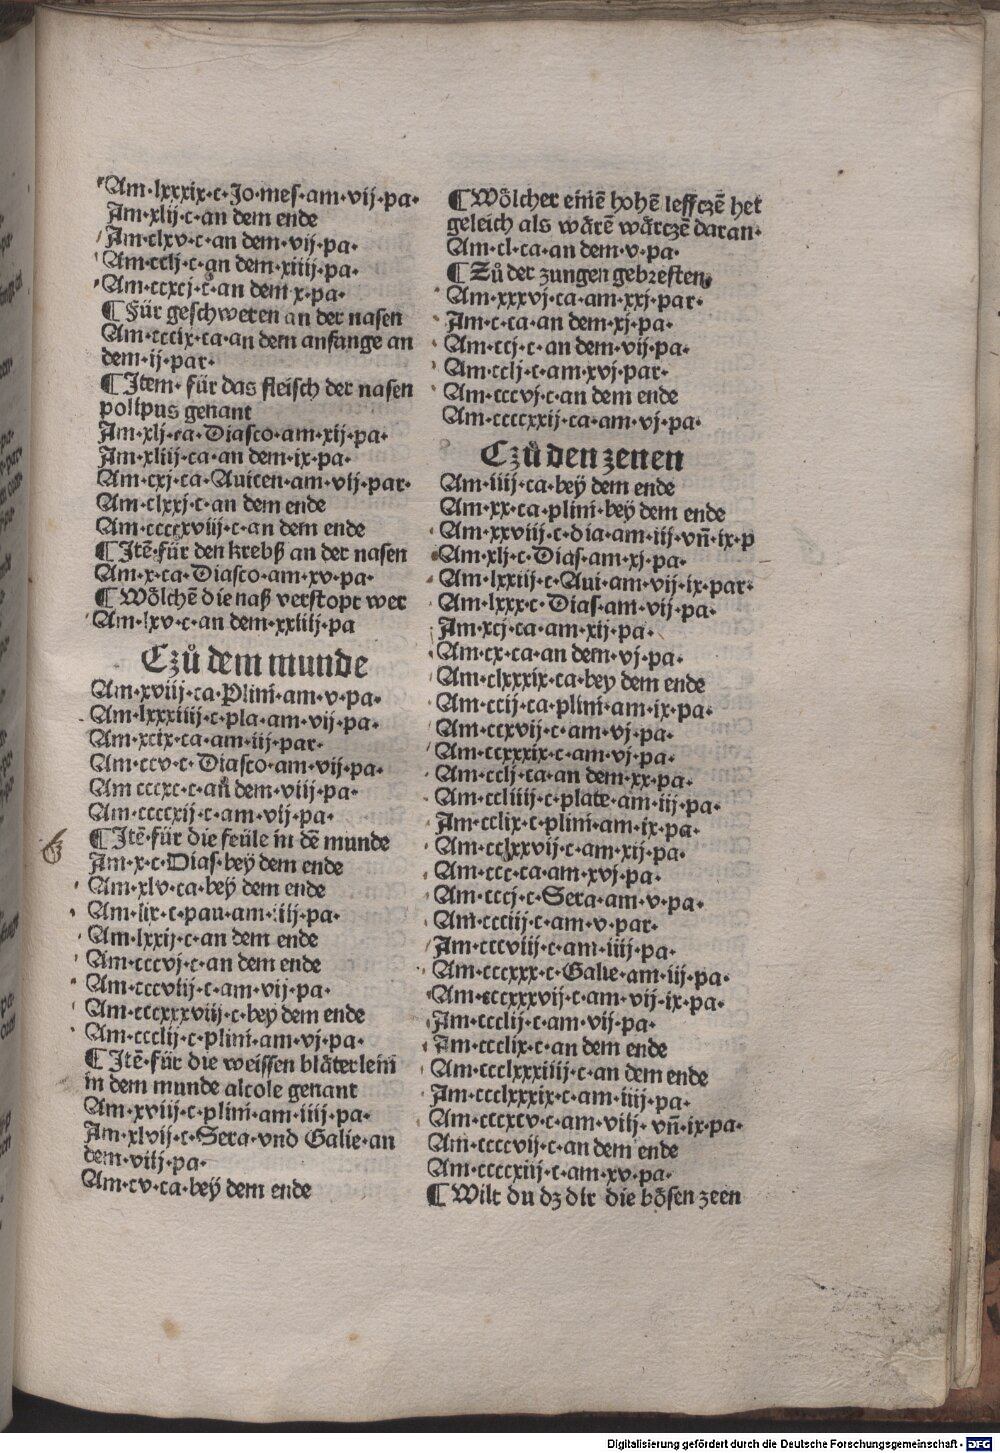 Am·lxxxix·c·Jo·mes·am·vij·pa·
Am·xlij·c·an dem ende
Am·clxv·c·an dem·vij·pa·
Am·cclj·c·an dem·xiiij·pa·
Am·ccxcj·c·an dem x·pa·
¶Für geschweren an der nasen
Am·cccix·ca·an dem anfange an
dem·ij·par·
¶Item·für das fleisch der nasen
polipus genant
Am·xlj·ca·Diasco·am·xij·pa·
Am·xliij·ca·an dem·ix·pa·
Am·cxj·ca·Auicen·am·vij·par·
Am·clxxj·c·an dem ende
Am·ccccxviij·c·an dem ende
¶Itē·für den krebß an der nasen
Am·x·ca·Diasco·am·xv·pa·
¶Wölchē die naß verstopt wer
Am·lxv·c·an dem·xxiiij·pa
Czů dem munde
Am·xviij·ca·Plini·am·v·pa·
Am·lxxxiiij·c·pla·am·vij·pa·
Am·xcix·ca·am·iij·par·
Am·ccv·c·Diasco·am·vij·pa·
Am cccxc·c·an dem·viij·pa·
Am·ccccxij·c·am·vij·pa·
¶Itē·für die feüle in dē munde
Am·x·c·Dias·beÿ dem ende
Am·xlv·ca·beÿ dem ende
Am·lix·c·pau·am·iiij·pa·
Am·lxxij·c·an dem ende
Am·cccvj·c·an dem ende
Am·cccviij·c·am·vij·pa·
Am·cccxxxviij·c·bey dem ende
Am·ccclij·c·plini·am·vj·pa·
¶Itē·für die weissen bläterlein
in dem munde alcole genant
Am·xviij·c·plini·am·iiij·pa·
Am·xlvij·c·Sera·vnd Galie·an
dem·viij·pa·
Am·cv·ca·beÿ dem ende
¶Wölcher einē hohē leffczē het
geleich als wärē wärczē daran·
Am·cl·ca·an dem·v·pa·
¶Zů der zungen gebresten·
Am·xxxvj·ca·am·xxj·par·
Am·c·ca·an dem·xj·pa·
Am·ccj·c·an dem·vij·pa·
Am·cclj·c·am·xvj·par·
Am·cccvj·c·an dem ende
Am·ccccxxij·ca·am·vj·pa·
Czů den zenen
Am·iiij·ca·beÿ dem ende
Am·xx·ca·plini·beÿ dem ende
Am·xxviij·c·dia·am·iij·vñ·ix·p
Am·xlj·c·Dias·am·xj·pa·
Am·lxxiij·c·Aui·am·vij·ix·par·
Am·lxxx·c·Dias·am·vij·pa·
Am·xcj·ca·am·xij·pa·
Am·cx·ca·an dem·vj·pa·
Am·clxxxix·ca·bey dem ende
Am·ccij·ca·plini·am·ix·pa·
Am·ccxvij·c·am·vj·pa·
Am·ccxxxix·c·am·vj·pa·
Am·cclj·ca·an dem·xx·pa·
Am·ccliiij·c·plate·am·iij·pa·
Am·cclix·c·plini·am·ix·pa·
Am·cclxxvij·c·am·xij·pa·
Am·ccc·ca·am·xvj·pa·
Am·cccj·c·Sera·am·v·pa·
Am·ccciij·c·am·v·par·
Am·cccviij·c·am·iiij·pa·
Am·cccxxx·c·Galie·am·iij·pa·
Am·cccxxxvij·c·am·vij·ix·pa·
Am·ccclij·c·am·vij·pa·
Am·ccclix·c·an dem ende
Am·ccclxxxiiij·c·an dem ende
Am·ccclxxxix·c·am·iiij·pa·
Am·cccxcv·c·am·viij·vñ·ix·pa·
Am·ccccvij·c·an dem ende
Am·ccccxiij·c·am·xv·pa·
¶Wilt du dz dir die bösen zeen
Digitalisierung gefördert durch die Deutsche Forschungsgemeinschaft - DFG